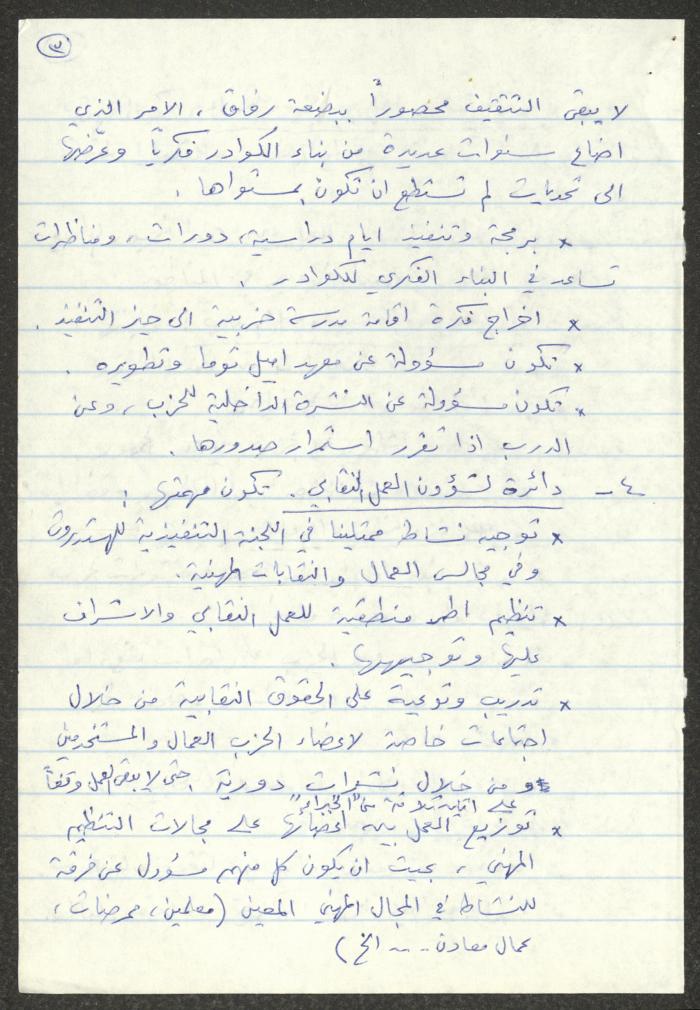 ٣
لا يبقى التثقيف محصوراً ببضعة رفاق ، الامر الذي
اضاع سنوات عديدة من بناء الكوادر فكرياً وعرضها
الى تحديات لم تستطع ان تكون بمستواها .
* برمجة وتنفيذ ايام دراسية، دورات ، ومناظرات
تساعد في البناء الفكري للكوادر .
* اخراج فكرة اقامة مدرسة حزبية الى حيز التنفيذ .
* تكون مسؤولة عن معهد اميل توما وتطويره .
* تكون مسؤولة عن النشرة الداخلية للحزب ، وعن
الدرب اذا تقرر استمرار صدورها .
٤- دائرة لشؤون العمل النقابي . تكون مهمتها :
* توجيه نشاط ممثلينا في اللجنة التنفيذية للهستدروت
وفي مجالس العمال والنقابات المهنية .
* تنظيم اطر منطقية للعمل النقابي والاشراف
عليها وتوجيهها .
* تدريب وتوعية على الحقوق النقابية من خلال
اجتماعات خاصة لاعضاء الحزب العمال والمستخدمين
ومن خلال نشرات دورية حتى لا يبقى العمل وقفاً
على اثنين ثلاثة من "الخبراء"
* توزيع العمل بين اعضائها على مجالات التنظيم
المهني ، بحيث ان يكون كل منهم مسؤول عن فرقة
للنشاط في المجال المهني المعين (معلمين ، ممرضات ،
عمال معادن .... الخ )